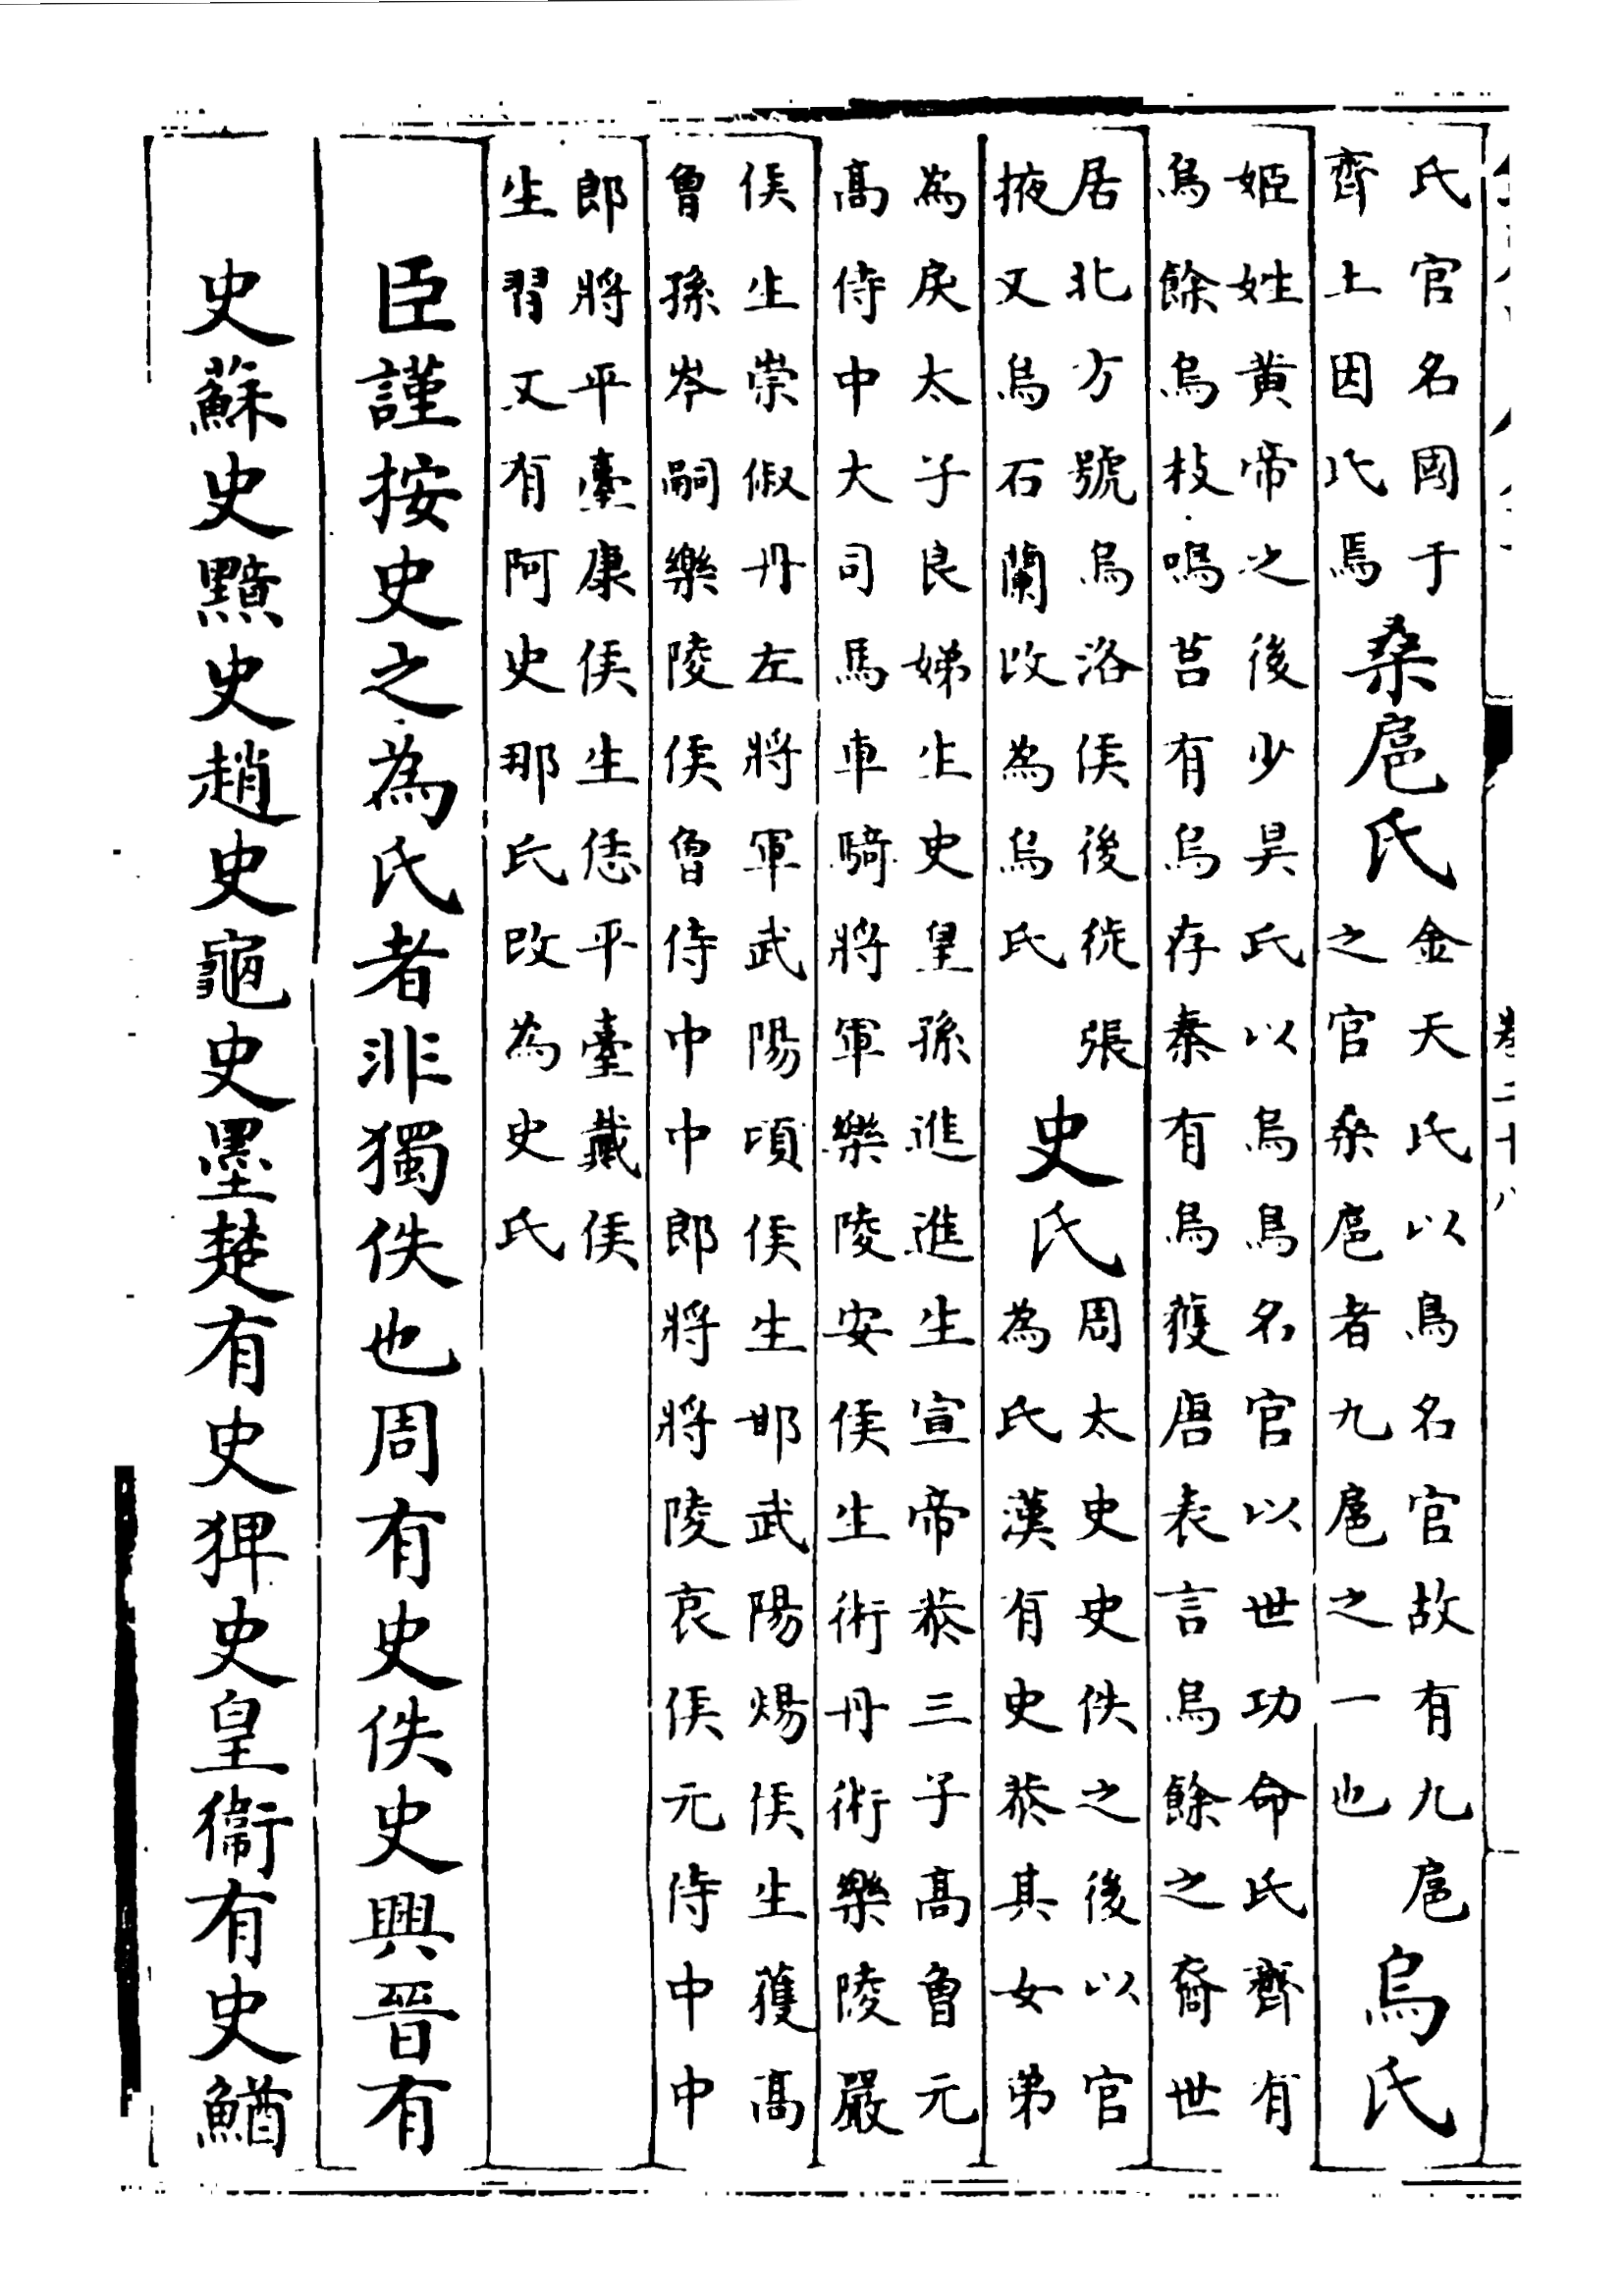 氏官名國于
齊上因氏焉
桑扈氏
金天氏以鳥名官故有九扈
之官桑扈者九扈之一也
烏氏
姬姓黃帝之後少昊氏以烏鳥名官以世功命氏齊有
烏餘烏枝鳴莒有烏存秦有烏獲唐表言烏餘之裔世
居北方號烏洛侯後徙張
掖又烏石蘭改為烏氏
史氏
周太史史佚之後以官
為氏漢有史恭其女弟
為戾太子良娣生史皇孫進進生宣帝恭三子髙曾元
髙侍中大司馬車騎將軍樂陵安侯生術丹術樂陵嚴
侯生崇俶丹左將軍武陽頃侯生邯武陽煬侯生獲髙
曾孫岑嗣樂陵侯曾侍中中郎將將陵哀侯元侍中中
郎將平臺康侯生恁平臺戴侯
生習又有阿史那氏改為史氏
臣謹按史之為氏者非獨佚也周有史佚史興晉有
史蘇史黯史趙史龜史墨楚有史猈史皇衞有史鰌
卷二十八